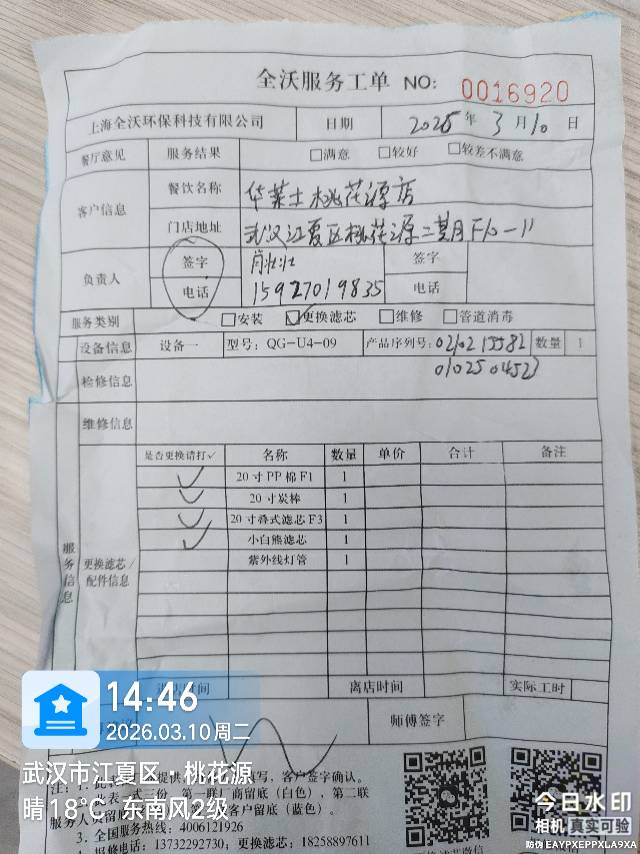 全沃服务工单 NO: 0016920
上海全沃环保科技有限公司 日期 2025 年 3 月 10 日
餐厅意见 服务结果 □满意 □较好 □较差不满意
客户信息 餐饮名称 华莱士桃花源店
门店地址 武汉江夏区桃花源二期F10-11
负责人 签字 肖壮壮 签字
电话 15927019835 电话
服务类别 □安装 ☑更换滤芯 □维修 □管道消毒
设备信息 设备一 型号: QG-U4-09 产品序列号: 0210215582 数量 1
0102504523
检修信息
维修信息
服务信息 更换滤芯/配件信息 是否更换请打✓ 名称 数量 单价 合计 备注
✓ 20寸PP棉F1 1
✓ 20寸炭棒 1
✓ 20寸叠式滤芯F3 1
✓ 小白熊滤芯 1
紫外线灯管 1
时间 离店时间 实际工时
师傅签字
14:46
2026.03.10 周二
武汉市江夏区·桃花源
晴 18°C 东南风2级
注: 1.
写, 客户签字确认。
一式三份, 第一联厂商留底(白色), 第二联
客户留底(蓝色)。
3. 全国服务热线: 4006121926
报修电话: 13732292730; 更换滤芯: 18258897611
今日水印
相机 真实可验
防伪 EAYPXEPPXLA9XA